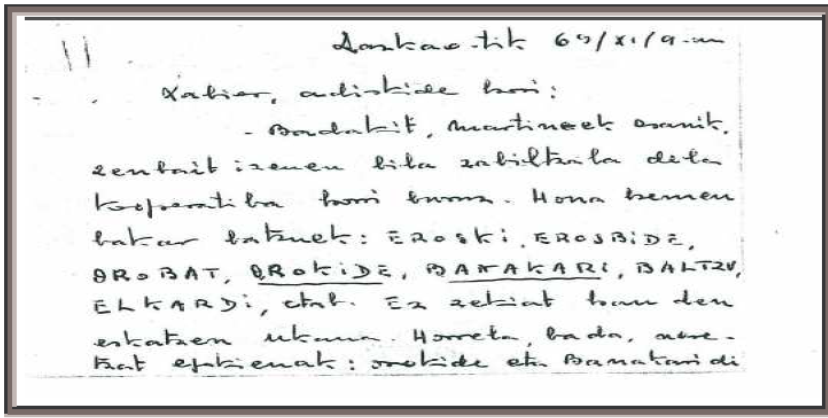 Arrikao-tik 69/XI/9-an
Xabier, adiskide hori:
- Badakit, Martinek esanik,
zenbait izenen bila zabiltzala dela
kooperatiba horri buruz. Hona hemen
bakar batzuek: EROSKi, EROSBiDE,
OROBAT, OROKiDE, BANAKARI, BALTZU,
ELKARDi, etab. Ez zekiat hau den
eskatzen ukana. Horrela, bada, nere-
tzat egokienak: orokide eta Banakari di